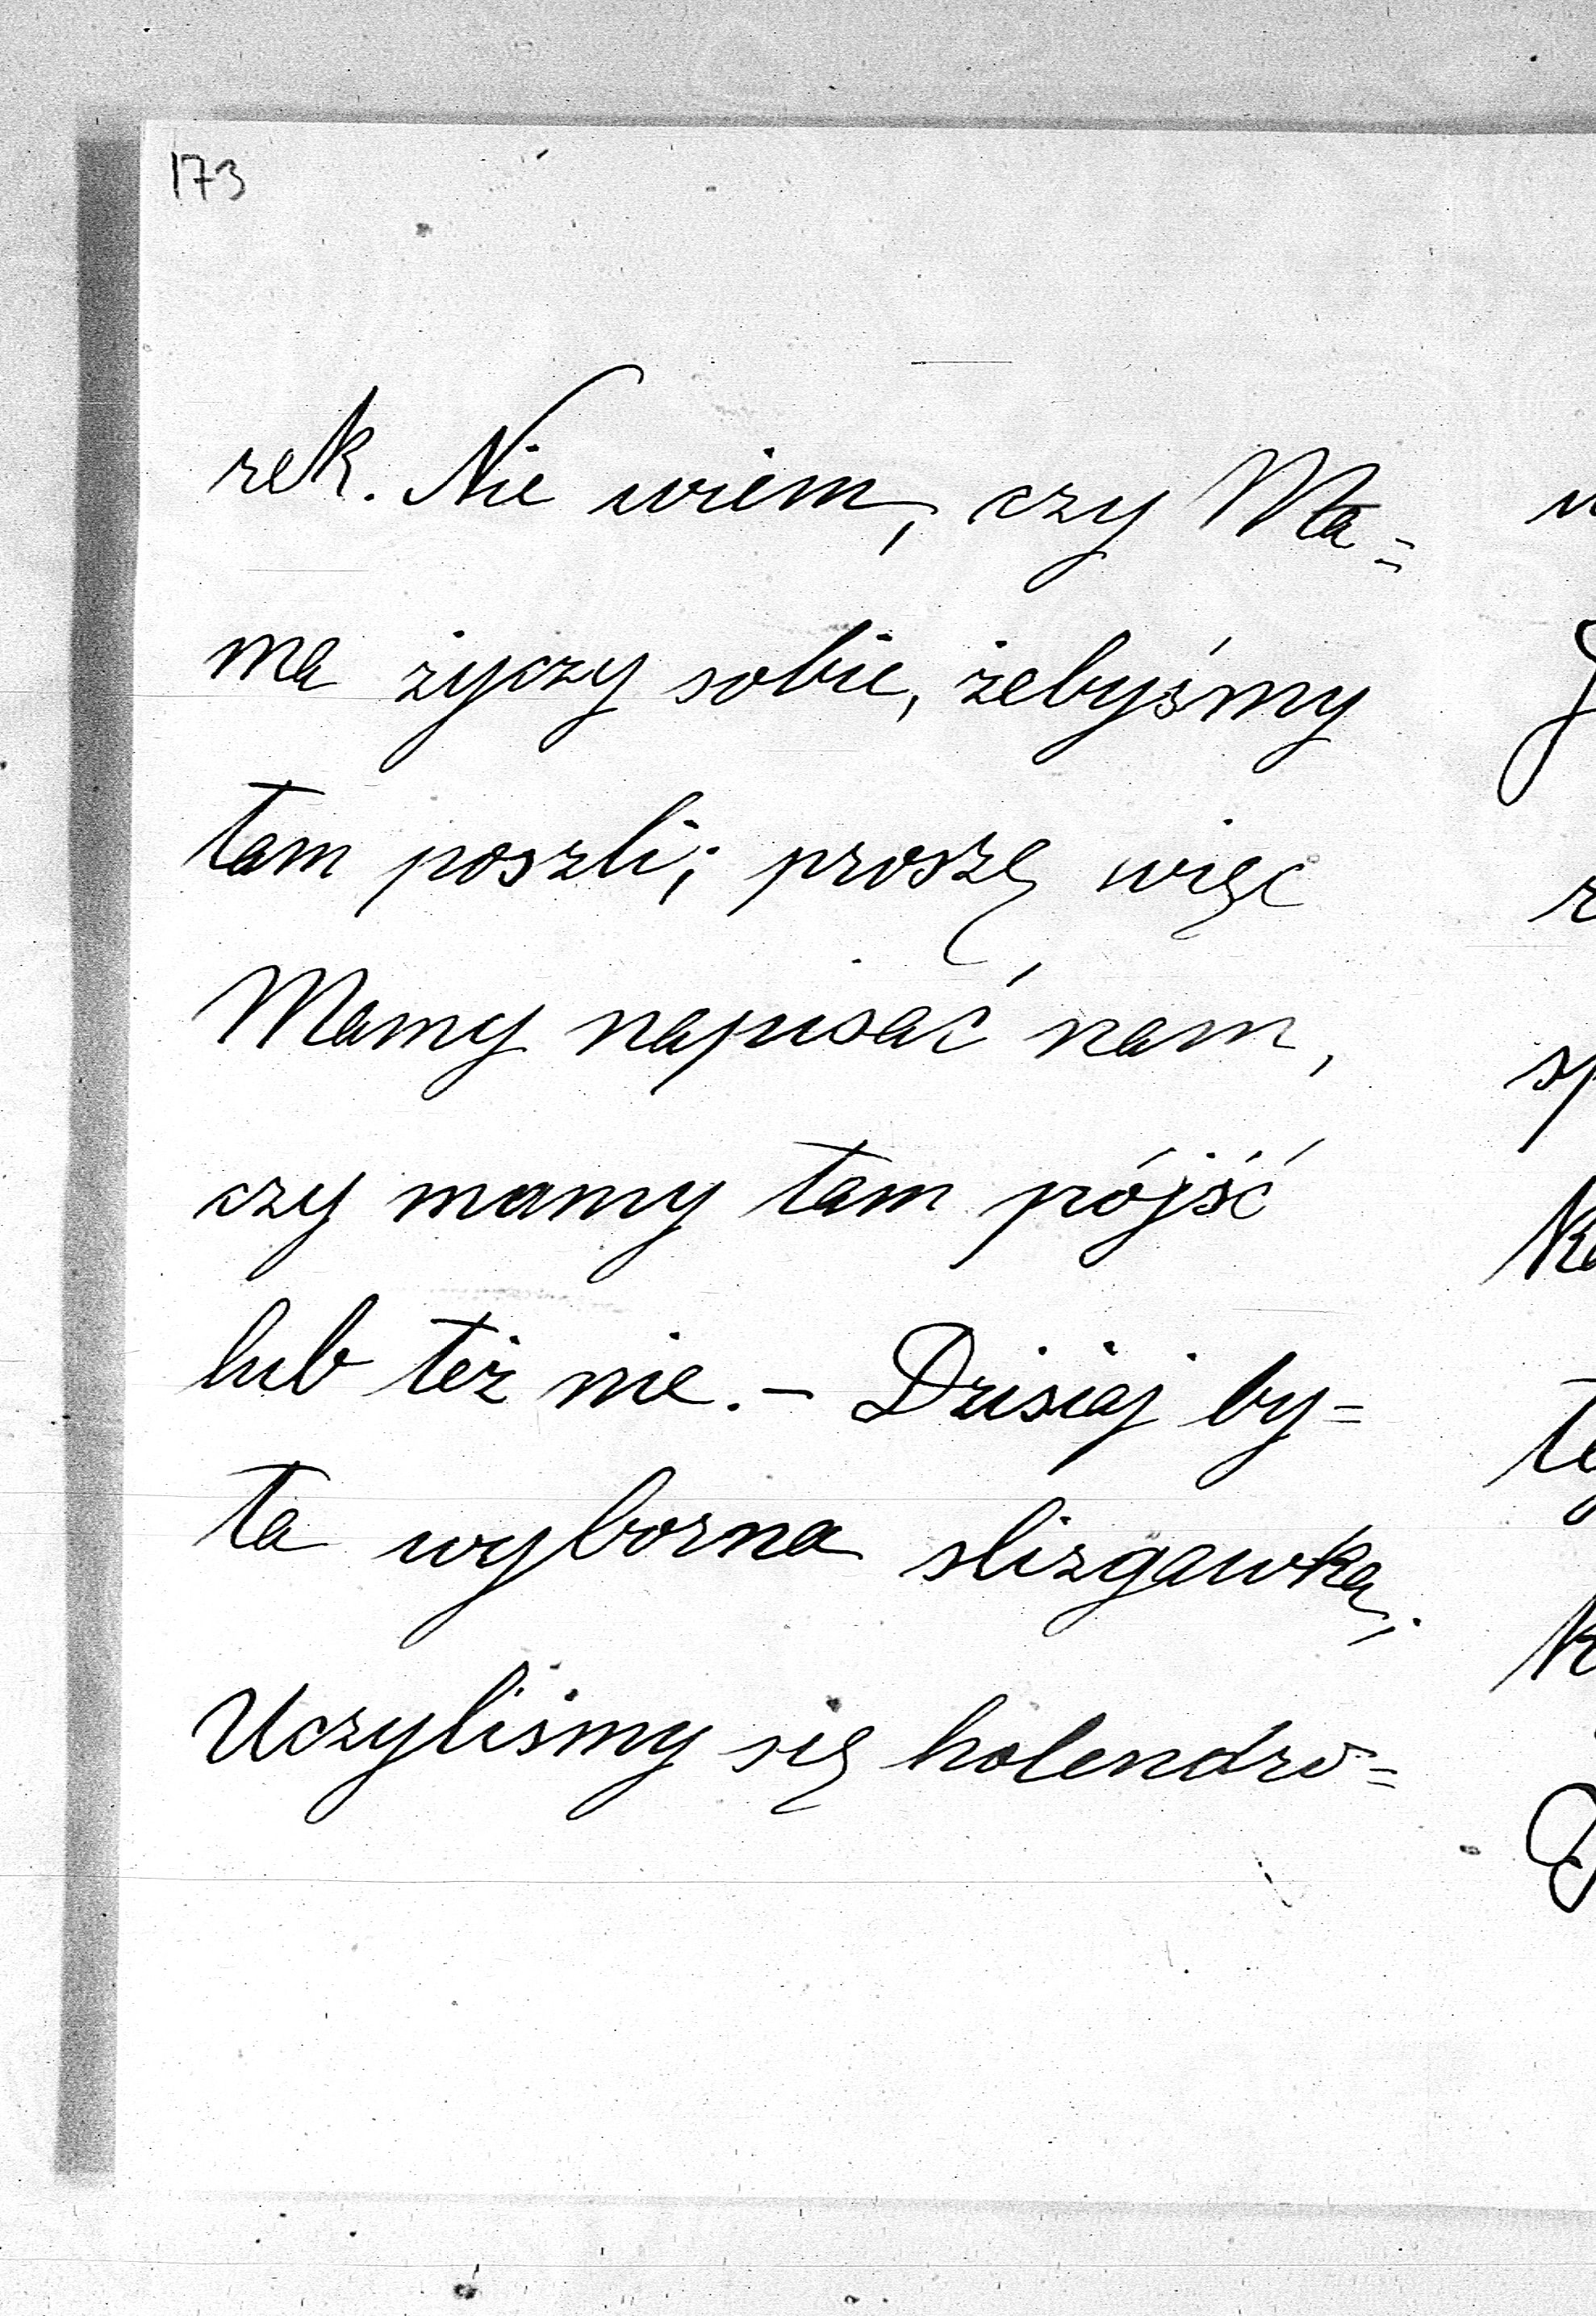 173
rek. Nie wiem, czy Ma=
ma życzy sobie, żebyśmy
tam poszli; proszę więc
Mamy napisać nam,
czy mamy tam pójść
lub też nie. – Dzisiaj by=
ła wyborna slizgawka;
Uczyliśmy się holendro=